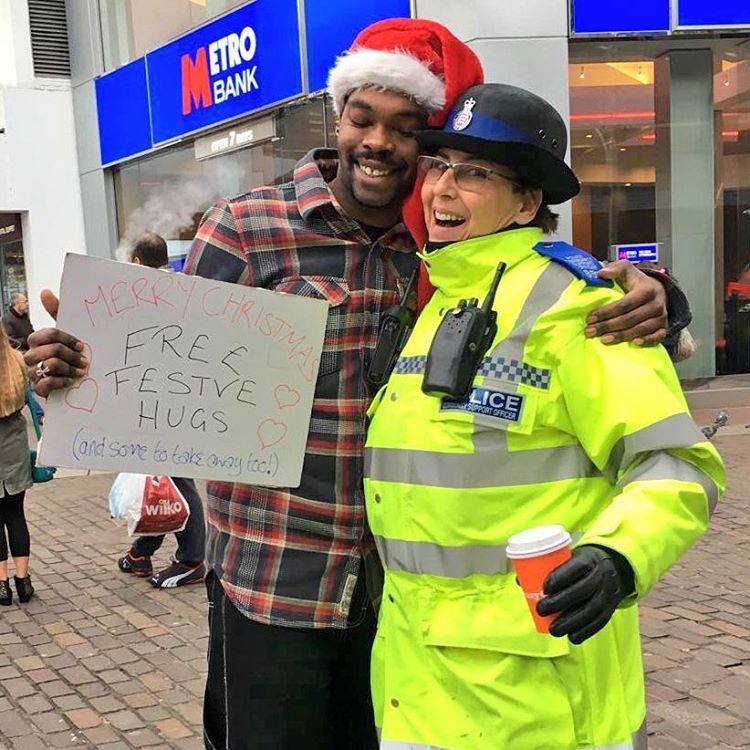 METRO
BANK
OPEN 7 DAYS
MERRY CHRISTMAS
FREE
FESTVE
HUGS
(and some to take away too!)
POLICE
COMMUNITY SUPPORT OFFICER
wilko